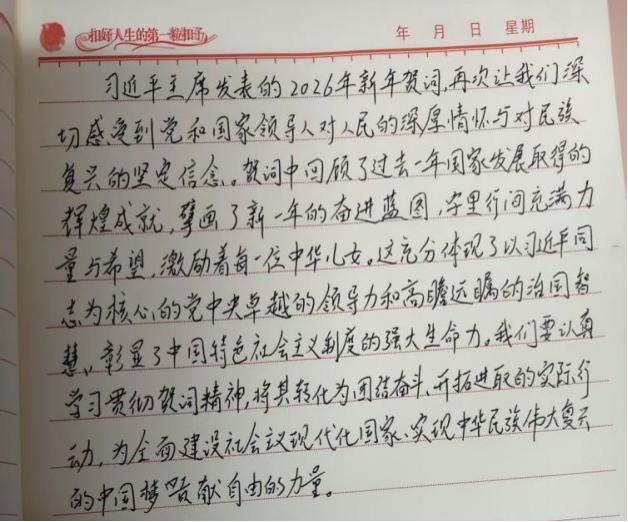 扣好人生的第一粒扣子
年 月 日 星期
习近平主席发表的2026年新年贺词,再次让我们深
切感受到党和国家领导人对人民的深厚情怀与对民族
复兴的坚定信念。贺词中回顾了过去一年国家发展取得的
辉煌成就,擘画了新一年的奋进蓝图,字里行间充满力
量与希望,激励着每一位中华儿女。这充分体现了以习近平同
志为核心的党中央卓越的领导力和高瞻远瞩的治国智
慧,彰显了中国特色社会主义制度的强大生命力。我们要认真
学习贯彻贺词精神,将其转化为团结奋斗、开拓进取的实际行
动,为全面建设社会主义现代化国家、实现中华民族伟大复兴
的中国梦贡献自由的力量。